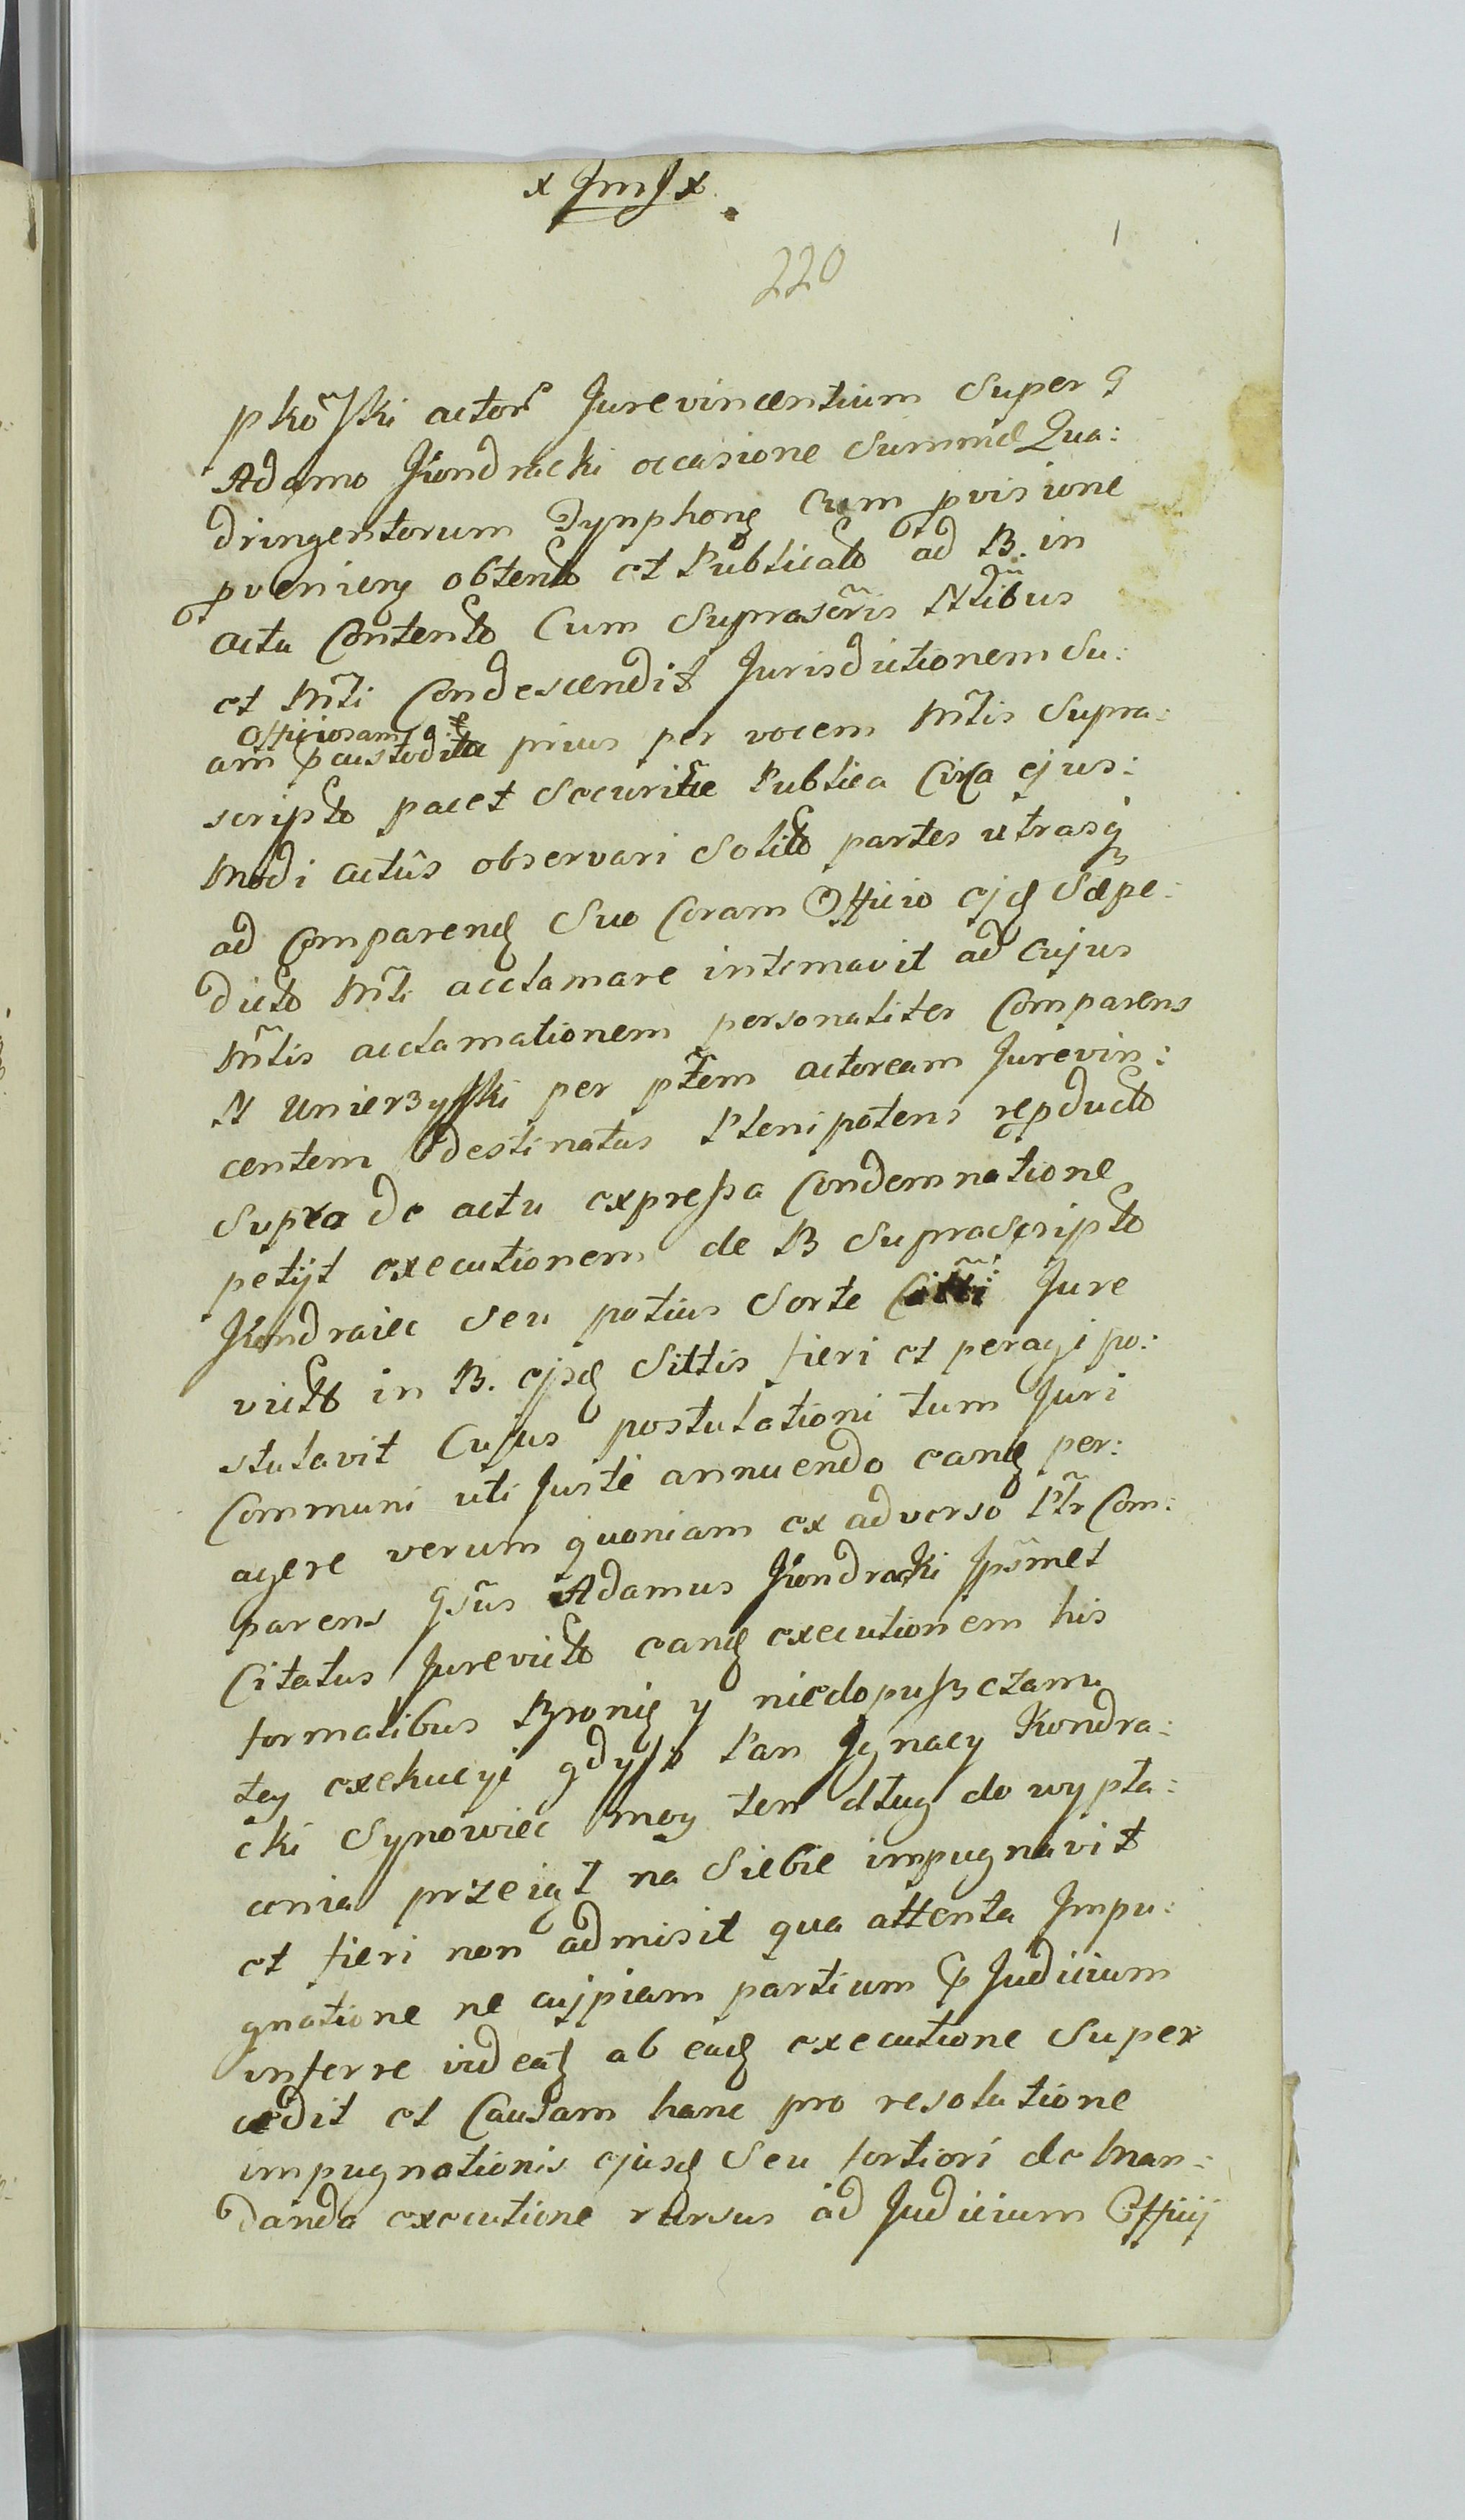 x JmJ x
220
1
pkõski actor Jurevincentium Super
Adamo Kondracki occasione Summæ Qua:
dringentorum Tynphonę Cum pvisione
pvenienę obtento et Publicato ad B. in
actu Contento Cum Suprascris Ndibus
et Mrli Condescendit Jurisdictionem Su:
Officiosam
am custodita prius per vocem Mrlis Supra:
scripto pacet Securitte Publica Circa ejus:
modi actûs observari Solito partes utrasq
ad Comparenđ Suo Coram Officio ejđ Sæpe:
dicto Mrli acclamare intimavit ad Cujus
Mrlis acclamationem personaliter Comparens
N Unierzyski per ptem actoream Jurevin:
centem destinatus Plenipotens repducto
Supra de actu expressa Condemnatione
petijt executionem de B Suprascripto
Kondraiec Seu potius Sorte Jure
victo in B. ejsđ Sittis fieri et peragi po:
stulavit Cujus postulationi tum Juri
Communi uti Juste annuendo eanđ per:
agere verum quoniam ex adverso Ptr Com:
parens Gsũs Adamus Kondracki Jpsemet
Citatus Jurevicto eanđ executionem his
formalibus Bronię y niedopuszczamu
tey exekucyi gdysz Pan Jgnacy Kondra:
cki Synowiec moy ten dług do wypła:
cenia przeiął na Siebie impugnavit
et fieri non admisit qua attenta Jmpu:
gnatione ne cujpiam partium Judicium
inferre videatz ab eađ executione Super
cedit et Causam hanc pro resolutione
impugnationis ejusđ Seu fortiori de Man:
danda executione rursus ad Judicium Officij